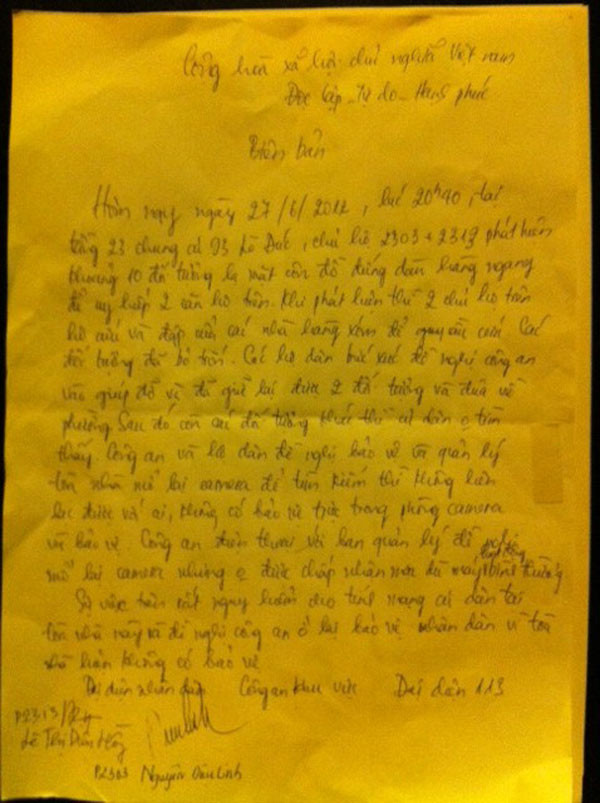 Cộng hòa xã hội chủ nghĩa Việt nam
Độc lập - Tự do - Hạnh phúc
Biên bản
Hôm nay ngày 27/6/2012, lúc 20h40, tại
tầng 23 chung cư 93 Lò Đúc, chủ hộ 2303 + 2313 phát hiện
khoảng 10 đối tượng lạ mặt côn đồ đứng dàn hàng ngang
để uy hiếp 2 căn hộ trên. Khi phát hiện thì 2 chủ hộ trên
hô cứu và đập cửa các nhà hàng xóm để cầu cứu. Các
đối tượng đã bỏ trốn. Các hộ dân bức xúc đề nghị công an
vào giúp đỡ và đã giữ lại được 2 đối tượng và đưa về
phường. Sau đó còn các đối tượng khác thì cư dân tìm
thấy. Công an và hộ dân đề nghị bảo vệ và quản lý
tòa nhà mở lại camera để tìm kiếm thì không liên
lạc được với ai, không có bảo vệ trực trong phòng camera
và bảo vệ. Công an điện thoại với ban quản lý đề nghị
mở lại camera nhưng được chấp nhận máy bình thường
Sự việc trên rất nguy hiểm cho tính mạng cư dân tại
tòa nhà này và đề nghị công an ở lại bảo vệ nhân dân vì tòa
nhà không có bảo vệ
Đại diện nhân dân Công an khu vực Đại diện 113
P2313
Lê Thị
P2303 Nguyễn Diệu Linh